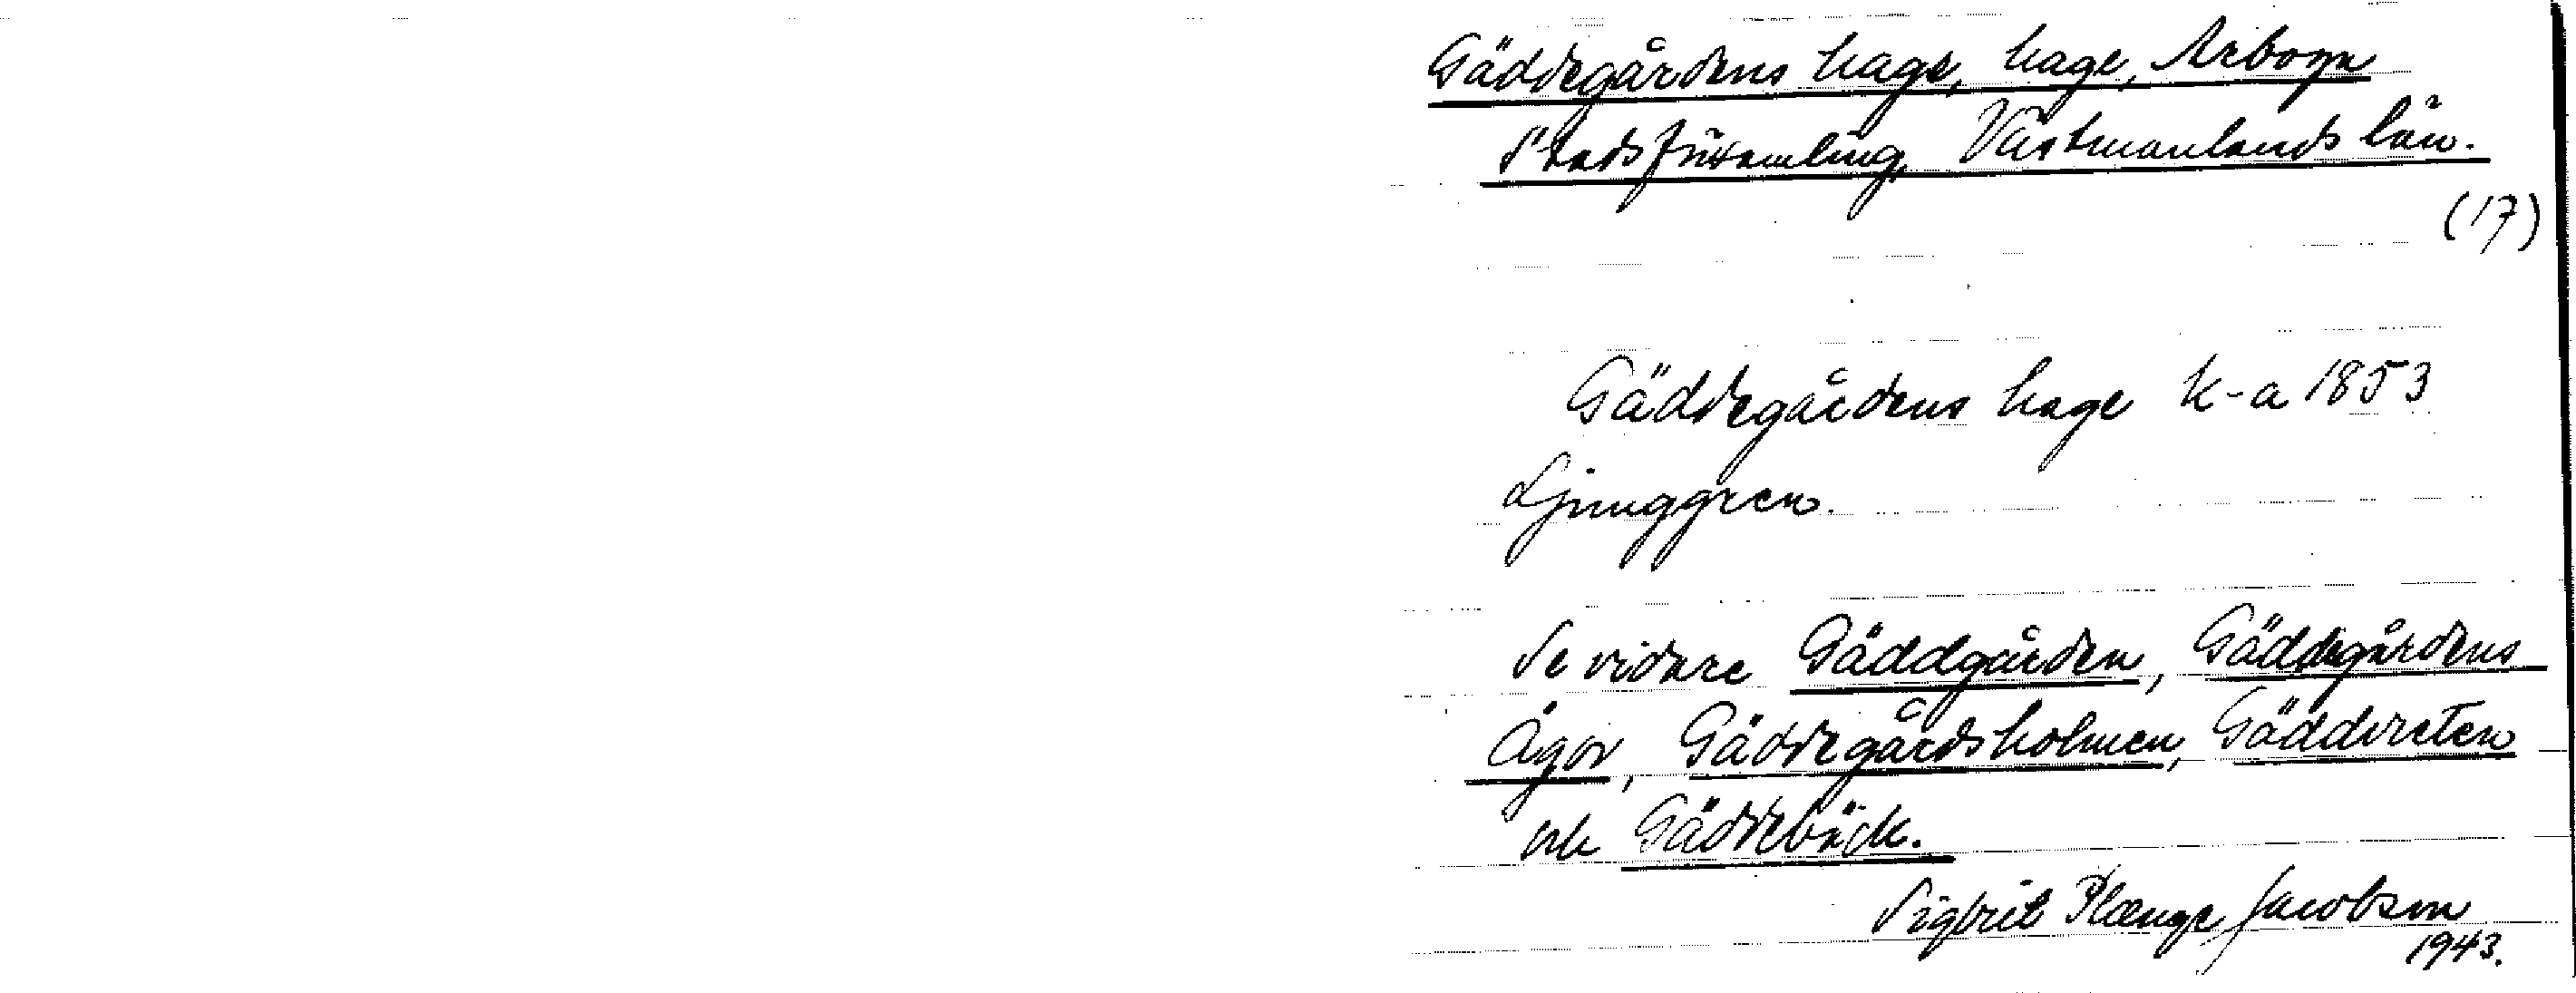 Gäddegårdens hage, hage, Arboga
Stadsförsamling, Västmanlands län.
(17)
Gäddegårdens hage k-a 1853
Ljunggren.
Se vidare Gäddgården, Gäddegårdens
Ägor, Gäddegårdsholmen, Gäddreten
och Gäddebäck.
Sigbrit Plænge Jacobson
1943.